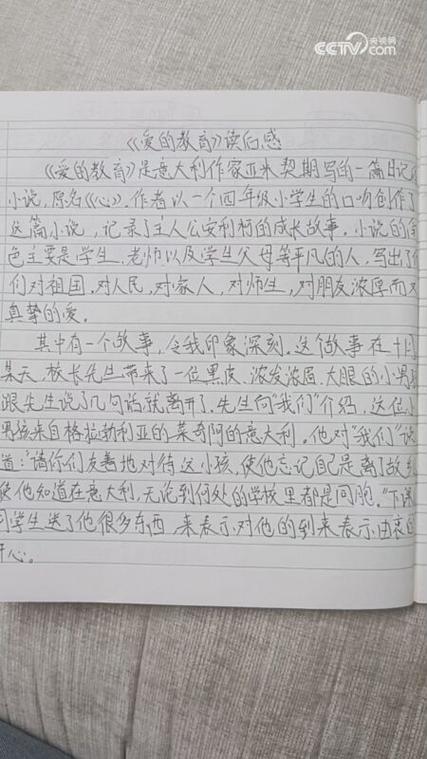 CCTV 央视网
com
《爱的教育》读后感
《爱的教育》是意大利作家亚米契期写的一篇日记
小说，原名《心》。作者以一个四年级小学生的口吻创作了
这篇小说，记录了主人公安利柯的成长故事。小说的角
色主要是学生、老师以及学生父母等平凡的人，写出了
们对祖国，对人民，对家人，对师生，对朋友浓厚而又
真挚的爱。
其中有一个故事，令我印象深刻。这个故事在十
某天，校长先生带来了一位黑皮、浓发浓眉、大眼的小男
跟先生说了几句话就离开了。先生向“我们”介绍，这位
男孩来自格拉勃利亚的莱奇阿的意大利。他对“我们”说
道：“请你们友善地对待这小孩，使他忘记自己是离了故
使他知道在意大利，无论到何处的学校里都是同胞。”下课
同学生送了他很多东西，来表示对他的到来表示由衷
开心。